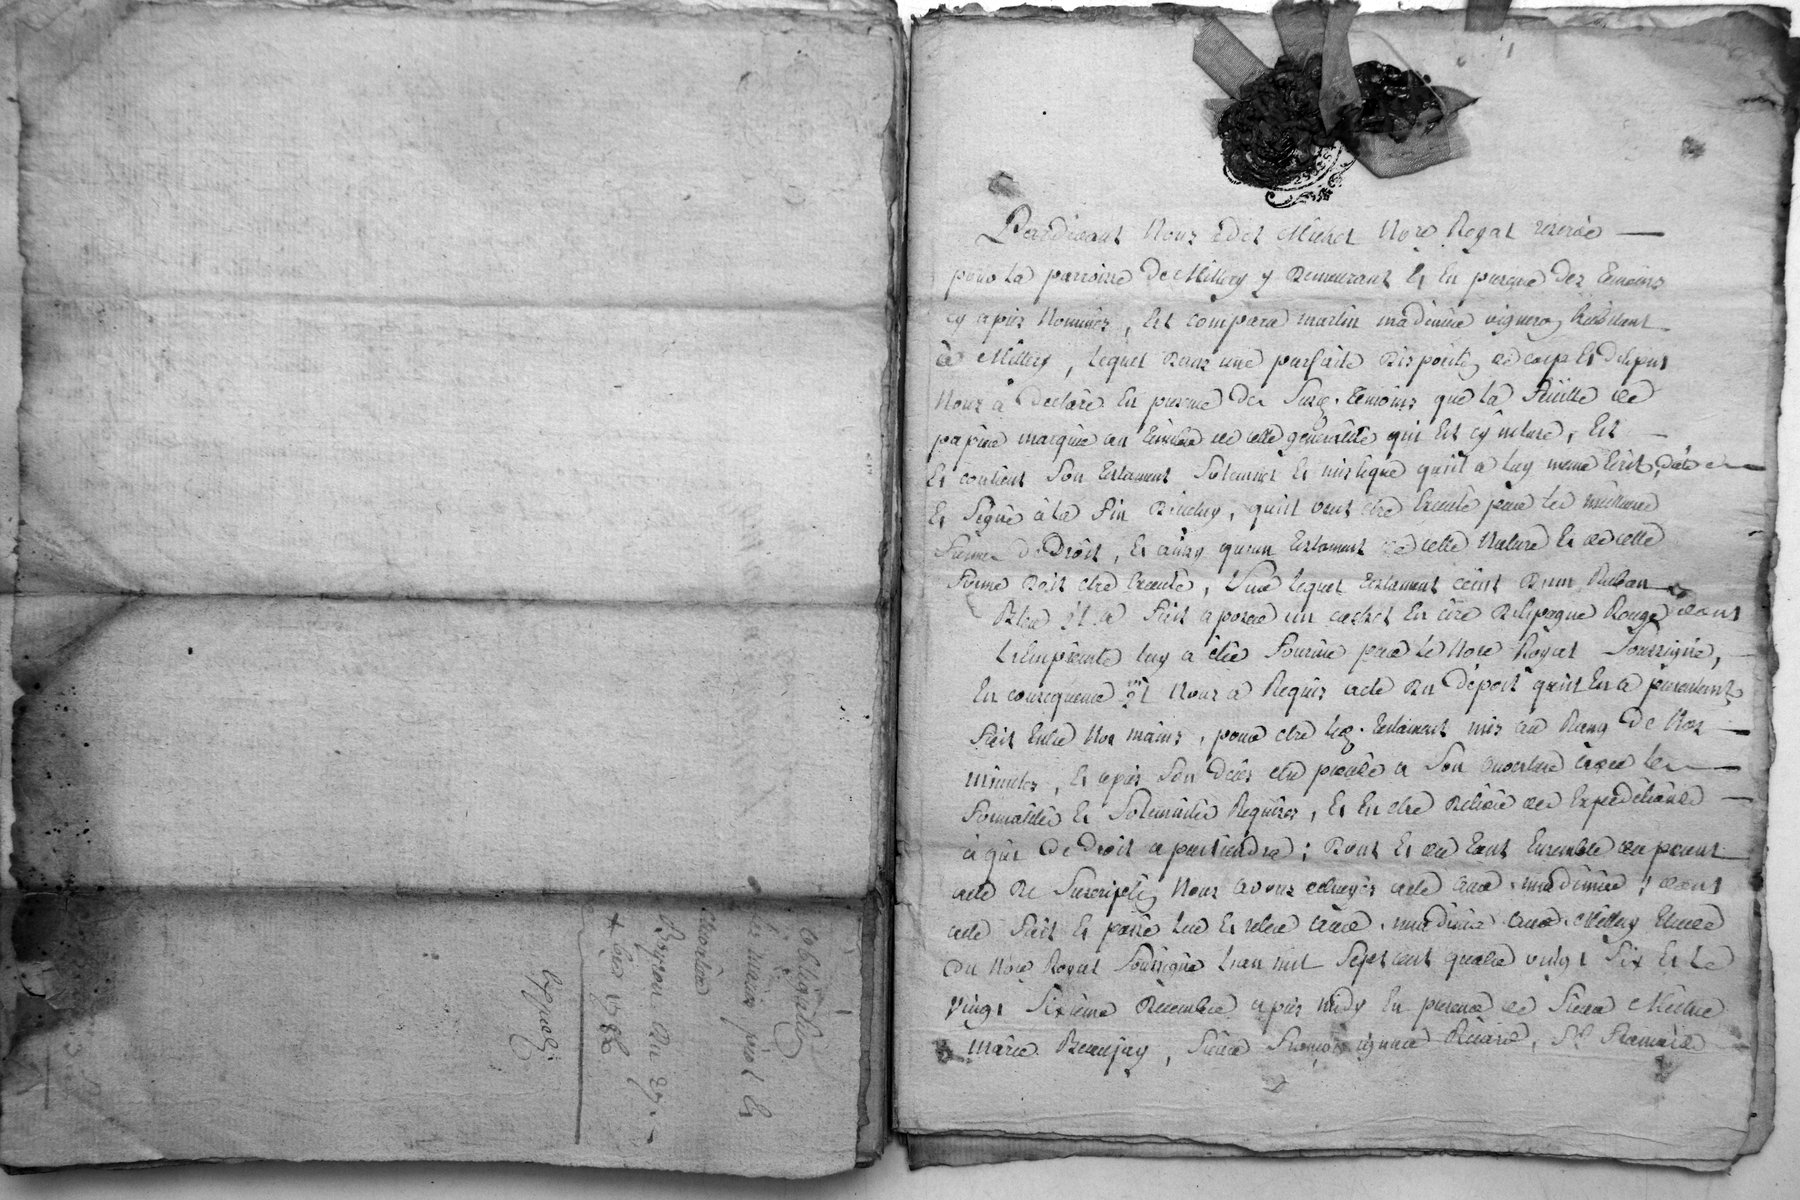 obligation
les mariés pinel &
chevalier
Du 27.
xbre 1786
Pardevant Nous Michel Nore Royal reservé
pour la parroisse de Millery y Demeurant Et En presence des temoins
cy apres Nommés, Est comparu martin madinier vigneron habitant
à Millery, lequel dans une parfaite disposition de corps Et desprit
Nous à declaré En presence des Susd. temoins que la feüille de
papier marquée au timbre de cette generalité qui Est cy incluse, Est
Et contient Son testament Solemnel Et mistique quil a luy meme Ecrit, daté
Et Signé à la fin Diceluy, quil veut etre Executé par les meilleures
formes de Droit, Et ainsy quun testament de cette Nature Et de cette
forme doit etre Executé, Sur lequel testament ceint dun Ruban
Bleu il a fait aposer un cachet En cire Despagne Rouge dont
Lempreinte luy a été fournie par le Nore Royal Soussigné,
En consequence il Nous a Requis acte du depôt quil En a presentement
fait Entre Nos mains, pour etre led. testament mis au Rang de Nos
minutes, Et apres Son deces etre procedé a Son ouverture avec les
formalités Et Solemnités Requises, Et En etre delivré des Expeditions
à qui de droit apartiendra; Dont Et du tout Ensemble du present
acte de Suscription Nous avons octroyés acte aud. madinier; dont
acte fait Et passé lu Et relu aud. madinier aud. Millery Etude
du Nore Royal Soussigné Lan mil Sept cent quatre vingt Six Et le
vingt Sixieme Decembre apres midy En presence de Sieur
marie Beaujay, Sieur François ignace